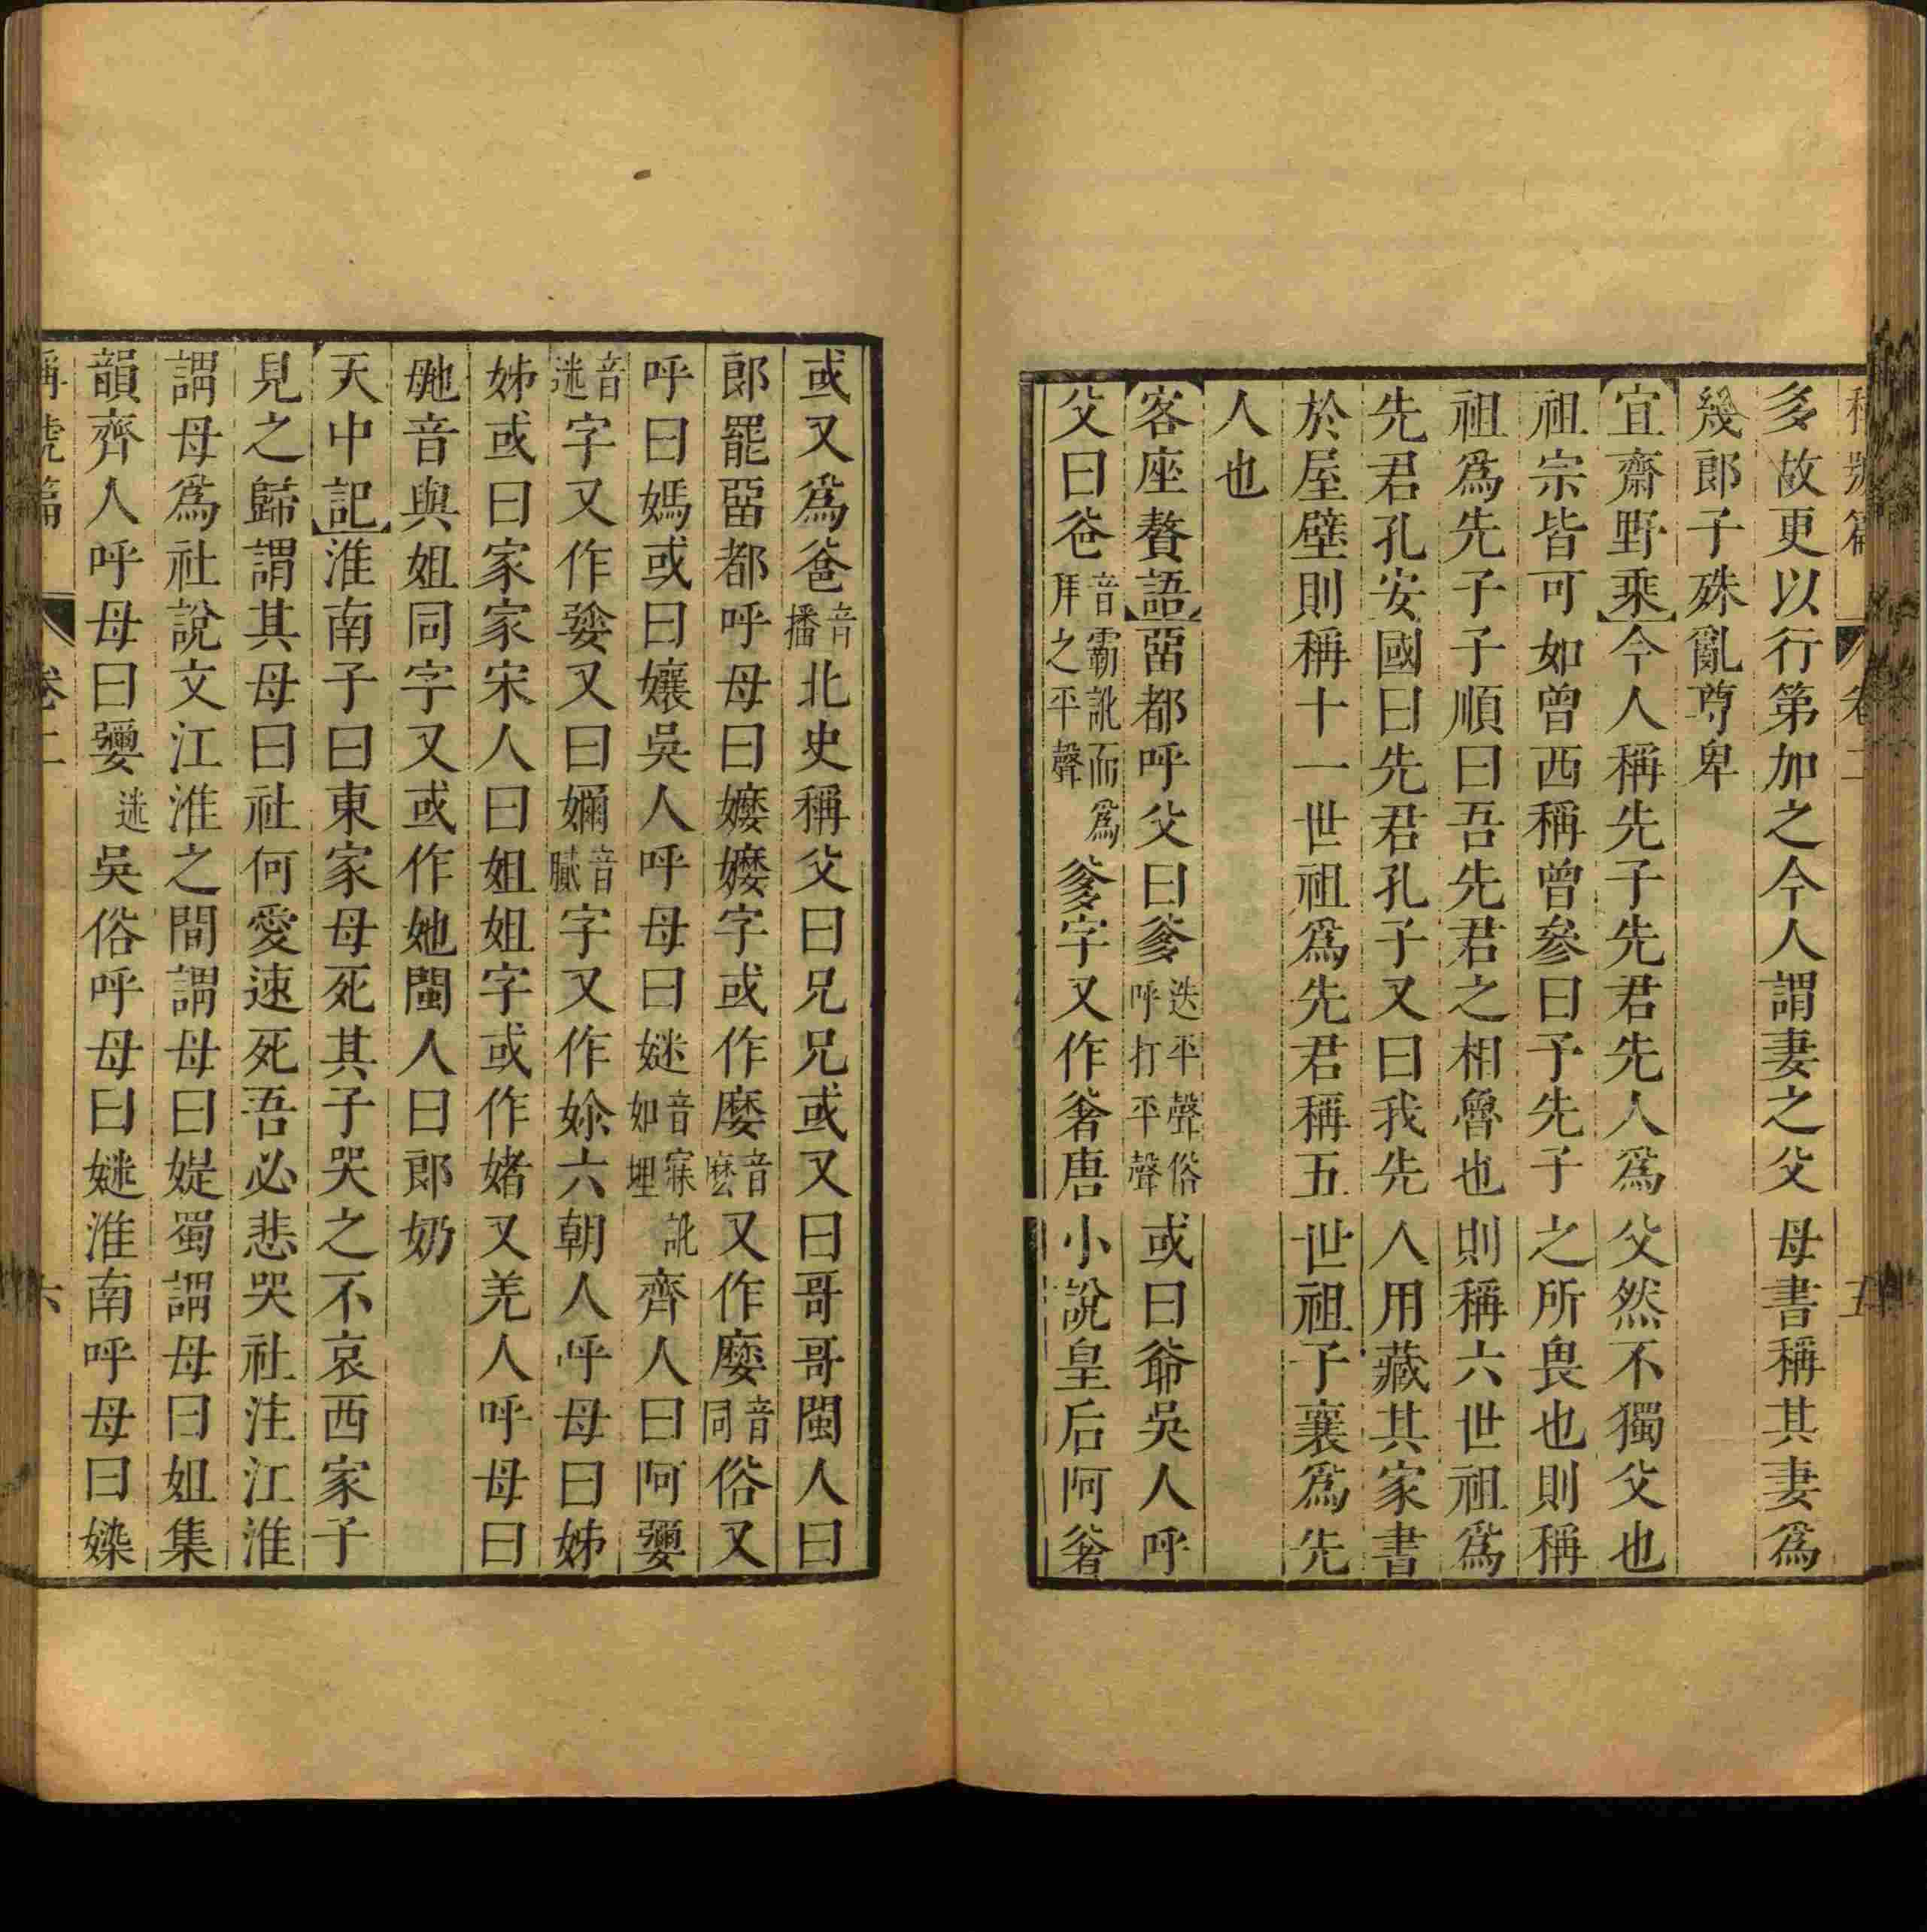 多故更以行第加之今人謂妻之父母書稱其妻爲
幾郎子殊亂尊卑
宜齋野乘今人稱先子先君先人爲父然不獨父也
祖宗皆可如曾西稱曾參曰予先子之所畏也則稱
祖爲先子子順曰吾先君之相魯也則稱六世祖爲
先君孔安國曰先君孔子又曰我先人用藏其家書
於屋壁則稱十一世祖爲先君稱五世祖子襄爲先
人也
客座贅語畱都呼父曰爹迭平聲俗呼打平聲或曰爺吳人呼
父曰爸音霸訛而爲拜之平聲爹字又作奢唐小說皇后阿奢
或又爲爸音播北史稱父曰兄兄或又曰哥哥閩人曰
郎罷畱都呼母曰嬤嬤字或作麼音麽又作麼音同俗又
呼曰媽或曰孃吳人呼母曰㜷音寐訛如埋齊人曰阿㜷
音迷字又作㜷又曰嬭音膩字又作㚷六朝人呼母曰姊
姊或曰家家宋人曰姐姐字或作媎又羌人呼母曰
毑音與姐同字又或作她閩人曰郎奶
天中記淮南子曰東家母死其子哭之不哀西家子
見之歸謂其母曰社何愛速死吾必悲哭社注江淮
謂母爲社說文江淮之間謂母曰媞蜀謂母曰姐集
韻齊人呼母曰㜷迷吳俗呼母曰㜷淮南呼母曰媣
稱號篇 卷二 六